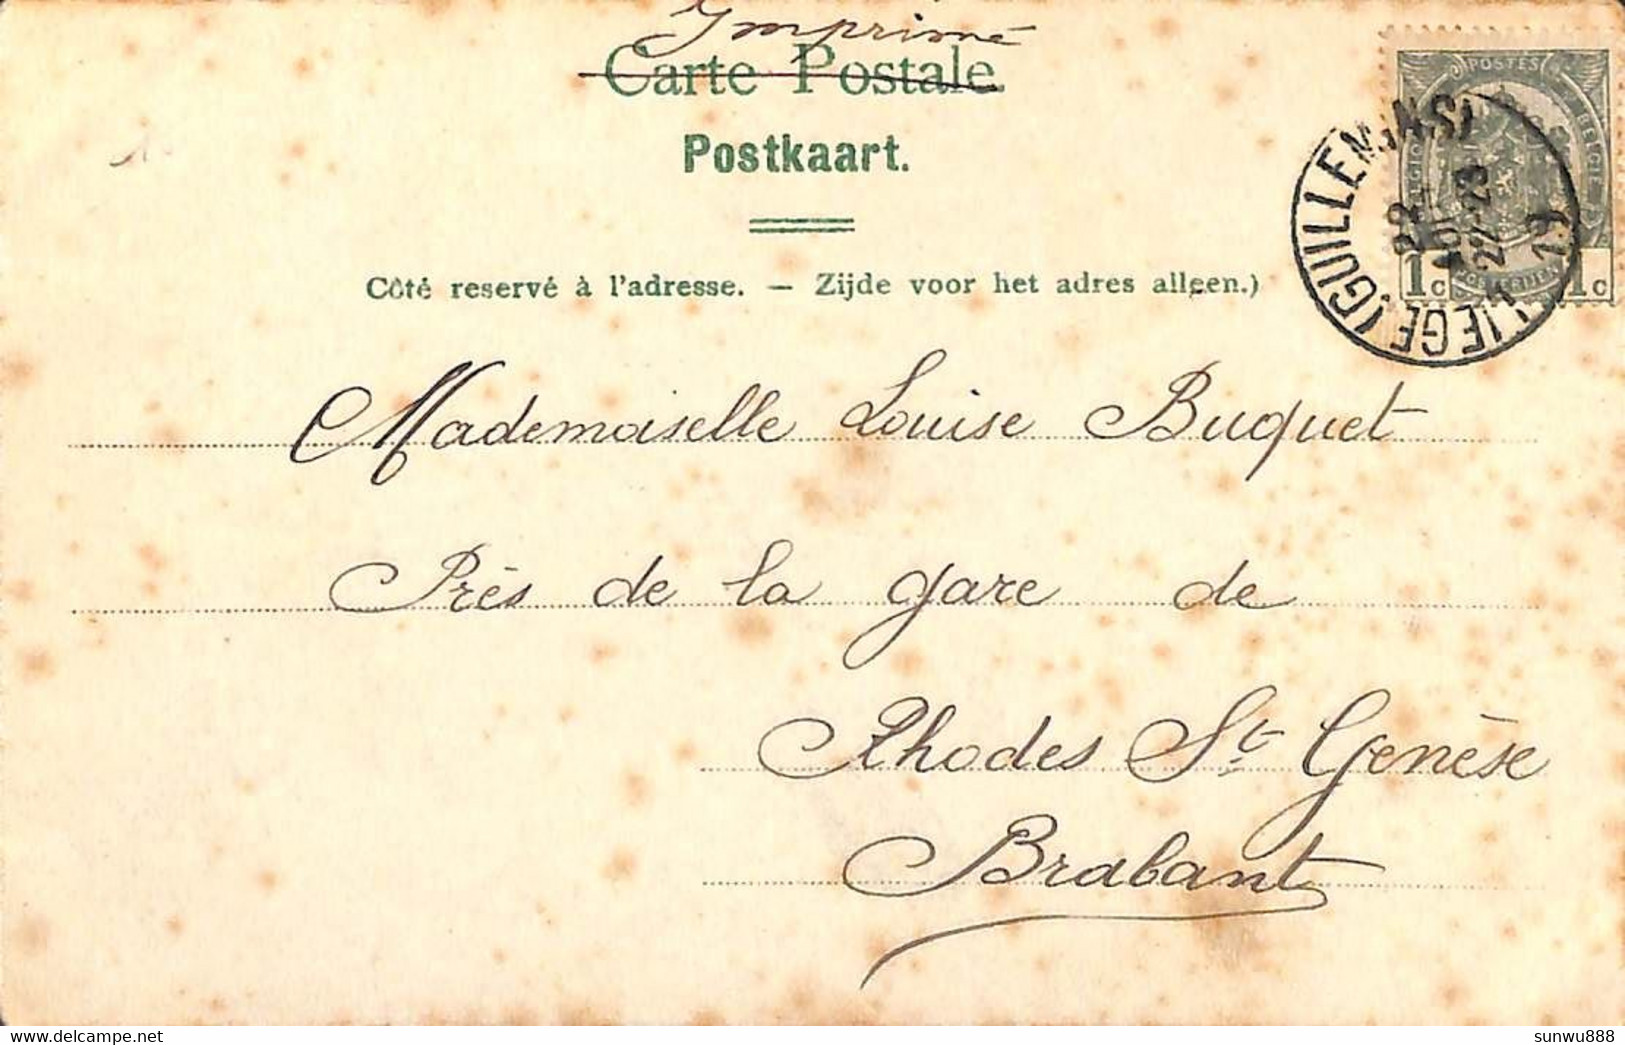 Imprimé
Carte Postale
Postkaart.
Côté reservé à l'adresse. — Zijde voor het adres alleen.)
POSTES
LIEGE (GUILLEMINS)
22
22-23
1c 1c
Mademoiselle Louise Buquet
Près de la gare de
Rhodes St Genèse
Brabant
www.delcampe.net
sunwu888